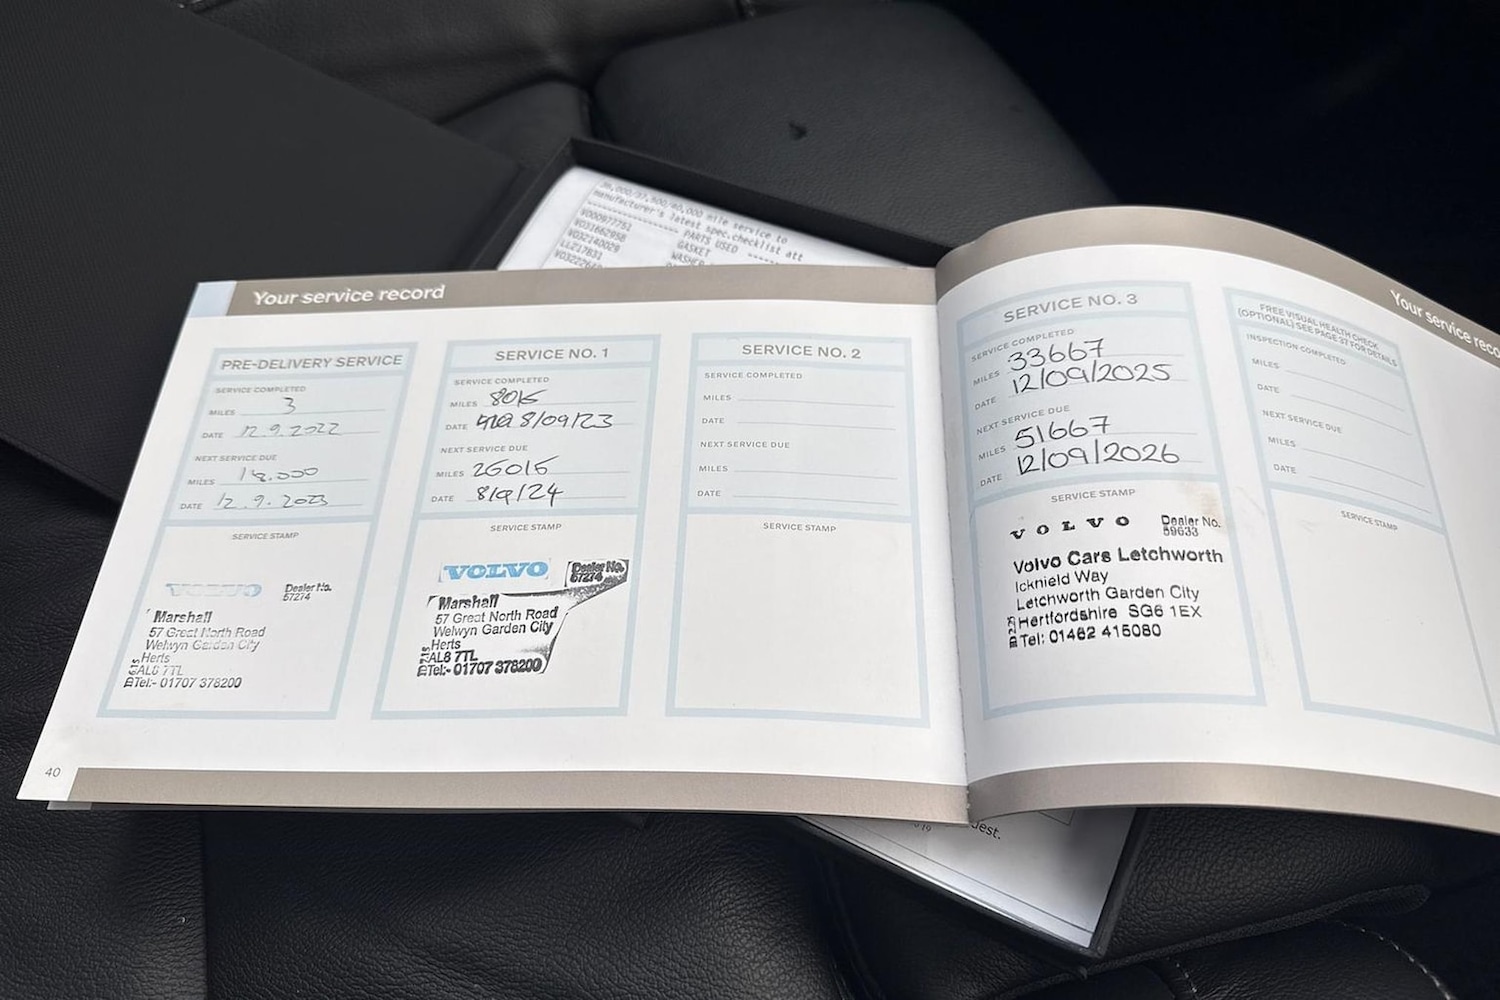 36,000/37,500/40,000 mile service to
manufacturer's latest spec.checklist att
PARTS USED
VO0977751 GASKET
VO31662958 WASHER
VO32140029
LL217831
Your service record
PRE-DELIVERY SERVICE
SERVICE COMPLETED
MILES 3
DATE 12.9.2022
NEXT SERVICE DUE
MILES 18.000
DATE 12.9.2023
SERVICE STAMP
VOLVO Dealer No.
57274
Marshall
57 Great North Road
Welwyn Garden City
Herts
AL8 7TL
Tel:- 01707 378200
SERVICE NO. 1
SERVICE COMPLETED
MILES 8016
DATE 8/09/23
NEXT SERVICE DUE
MILES 26016
DATE 8/9/24
SERVICE STAMP
VOLVO Dealer No.
57274
Marshall
57 Great North Road
Welwyn Garden City
Herts
AL8 7TL
Tel:- 01707 378200
SERVICE NO. 2
SERVICE COMPLETED
MILES
DATE
NEXT SERVICE DUE
MILES
DATE
SERVICE STAMP
40
SERVICE NO. 3
SERVICE COMPLETED
MILES 33667
DATE 12/09/2025
NEXT SERVICE DUE
MILES 51667
DATE 12/09/2026
SERVICE STAMP
VOLVO Dealer No.
59633
Volvo Cars Letchworth
Icknield Way
Letchworth Garden City
Hertfordshire SG6 1EX
Tel: 01462 415080
Your service reco
FREE VISUAL HEALTH CHECK
(OPTIONAL) SEE PAGE 37 FOR DETAILS
INSPECTION COMPLETED
MILES
DATE
NEXT SERVICE DUE
MILES
DATE
SERVICE STAMP